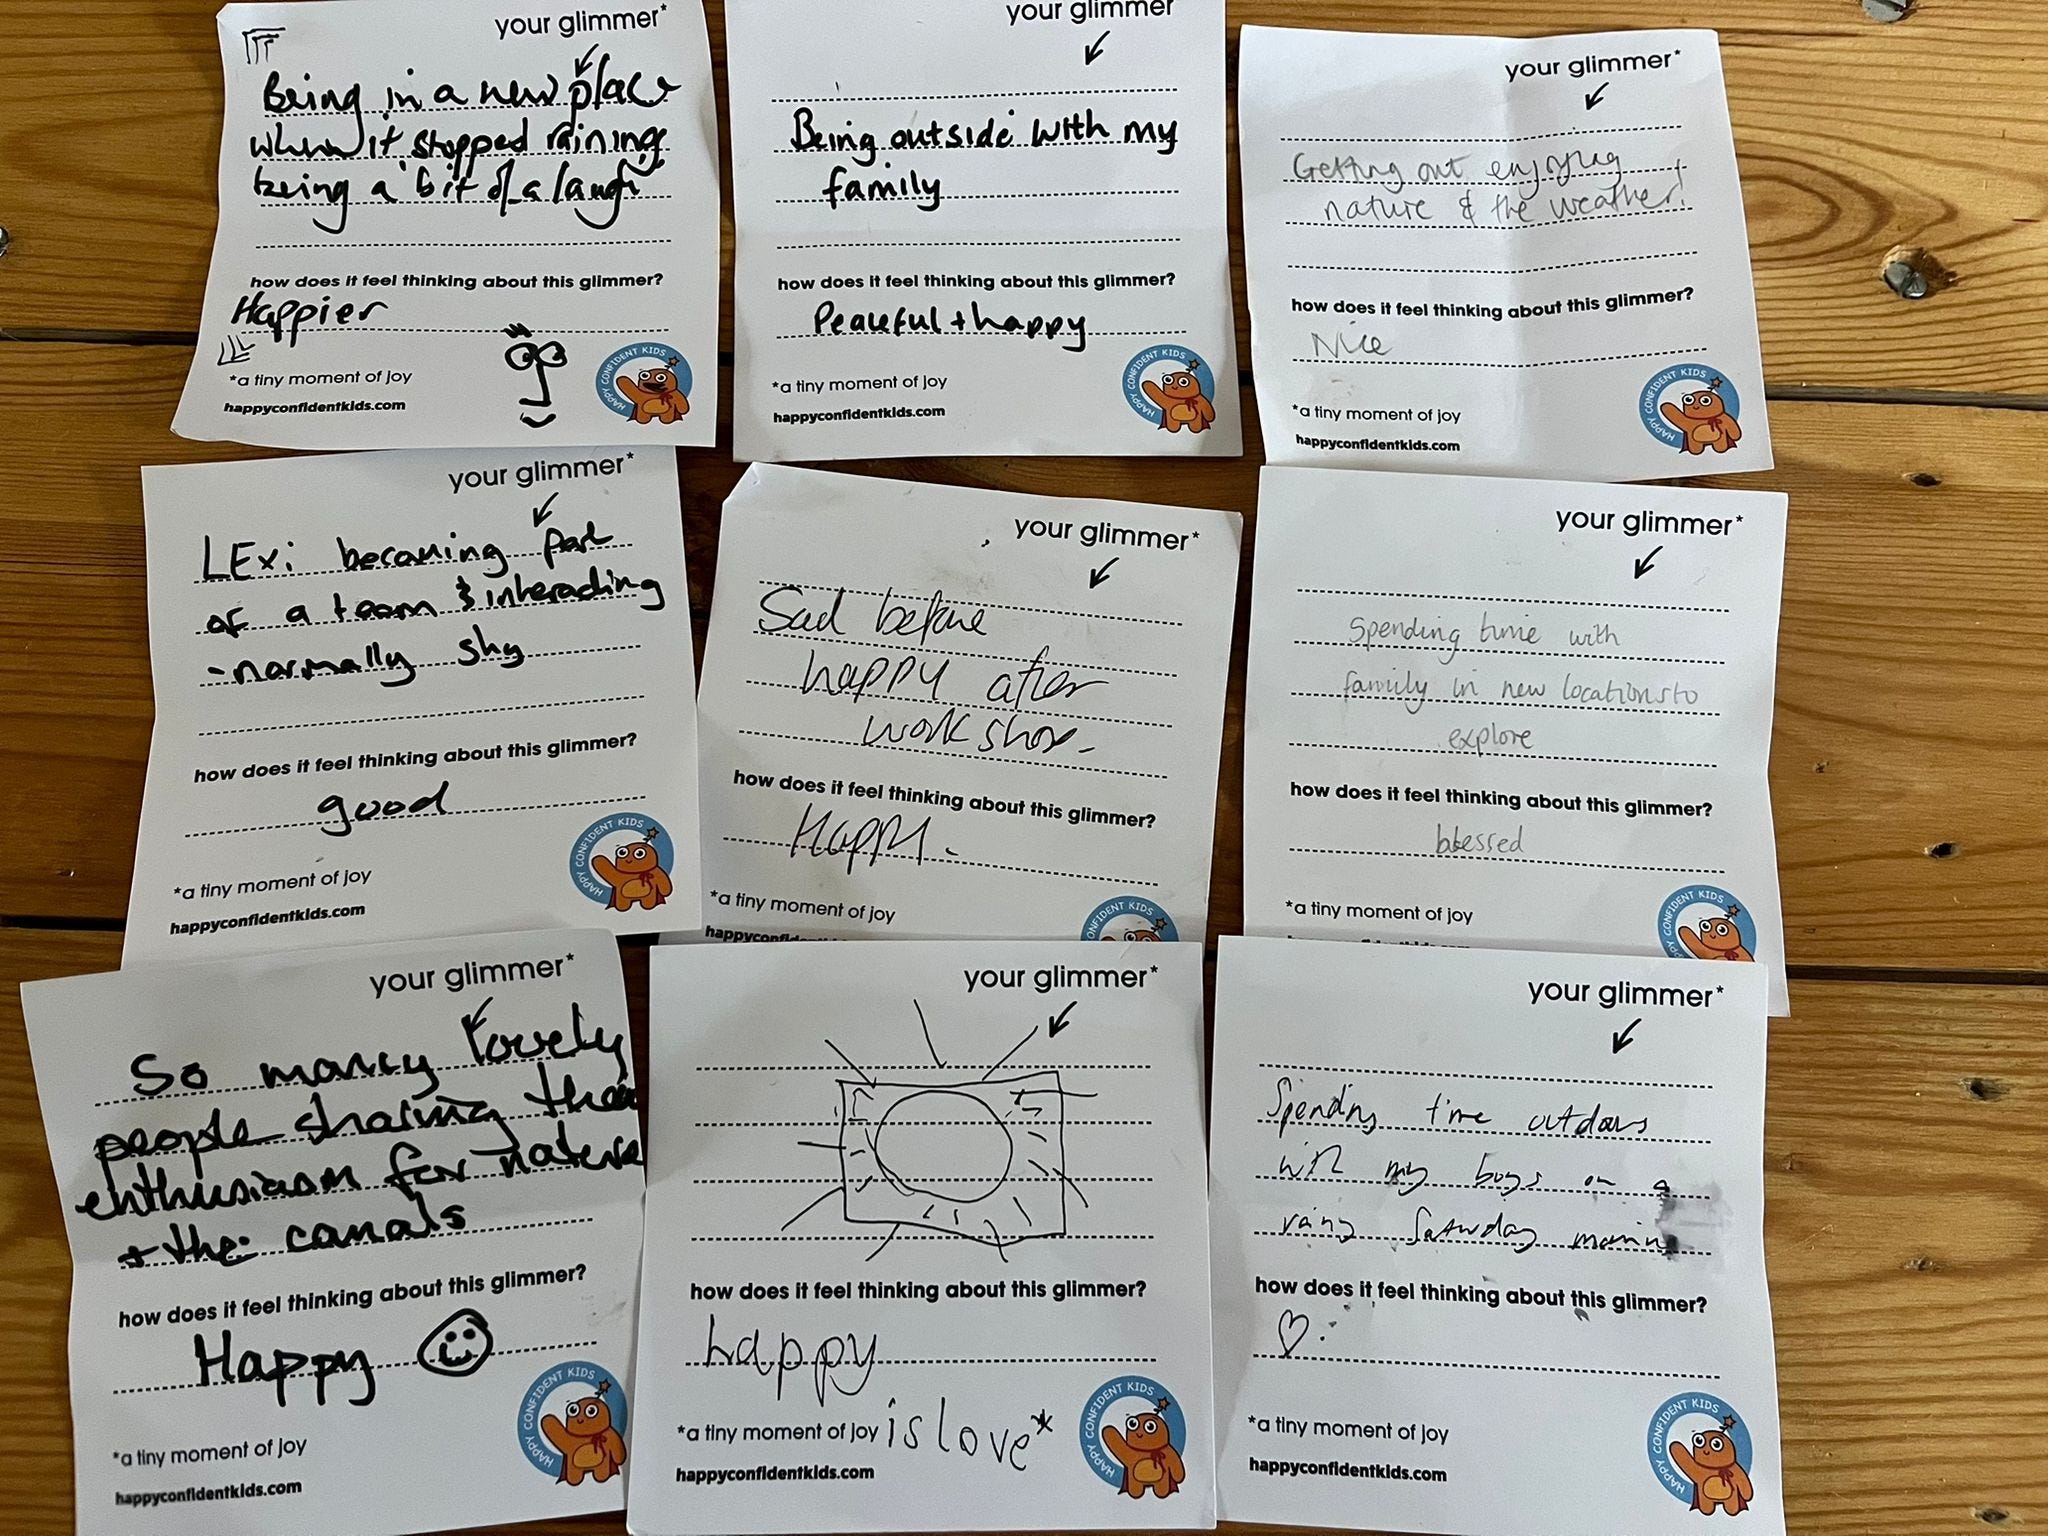 your glimmer*
Being in a new place
when it stopped raining
being a bit of a laugh
how does it feel thinking about this glimmer?
Happier
*a tiny moment of joy
happyconfidentkids.com
HAPPY CONFIDENT KIDS
your glimmer
Being outside with my
family
how does it feel thinking about this glimmer?
Peaceful + happy
*a tiny moment of joy
happyconfidentkids.com
HAPPY CONFIDENT KIDS
your glimmer*
Getting out enjoying
nature & the weather!
how does it feel thinking about this glimmer?
Nice
*a tiny moment of joy
happyconfidentkids.com
HAPPY CONFIDENT KIDS
your glimmer*
LExi becoming part
of a team & interacting
- normally shy
how does it feel thinking about this glimmer?
good
*a tiny moment of joy
happyconfidentkids.com
HAPPY CONFIDENT KIDS
your glimmer*
Sad before
happy after
workshop.
how does it feel thinking about this glimmer?
Happy.
*a tiny moment of joy
happyconfidentki
ONFIDENT KIDS
your glimmer*
Spending time with
family in new locations to
explore
how does it feel thinking about this glimmer?
blessed
*a tiny moment of joy
CONFIDENT KIDS
your glimmer*
So many lovely
people sharing their
enthusiasm for nature
+ the canals
how does it feel thinking about this glimmer?
Happy
*a tiny moment of joy
happyconfidentkids.com
HAPPY CONFIDENT KIDS
your glimmer*
how does it feel thinking about this glimmer?
happy
*a tiny moment of joy is love*
happyconfidentkids.com
HAPPY CONFIDENT KIDS
your glimmer*
Spending time outdoors
with my boys on a
rainy Saturday morning
how does it feel thinking about this glimmer?
♡.
*a tiny moment of joy
happyconfidentkids.com
HAPPY CONFIDENT KIDS